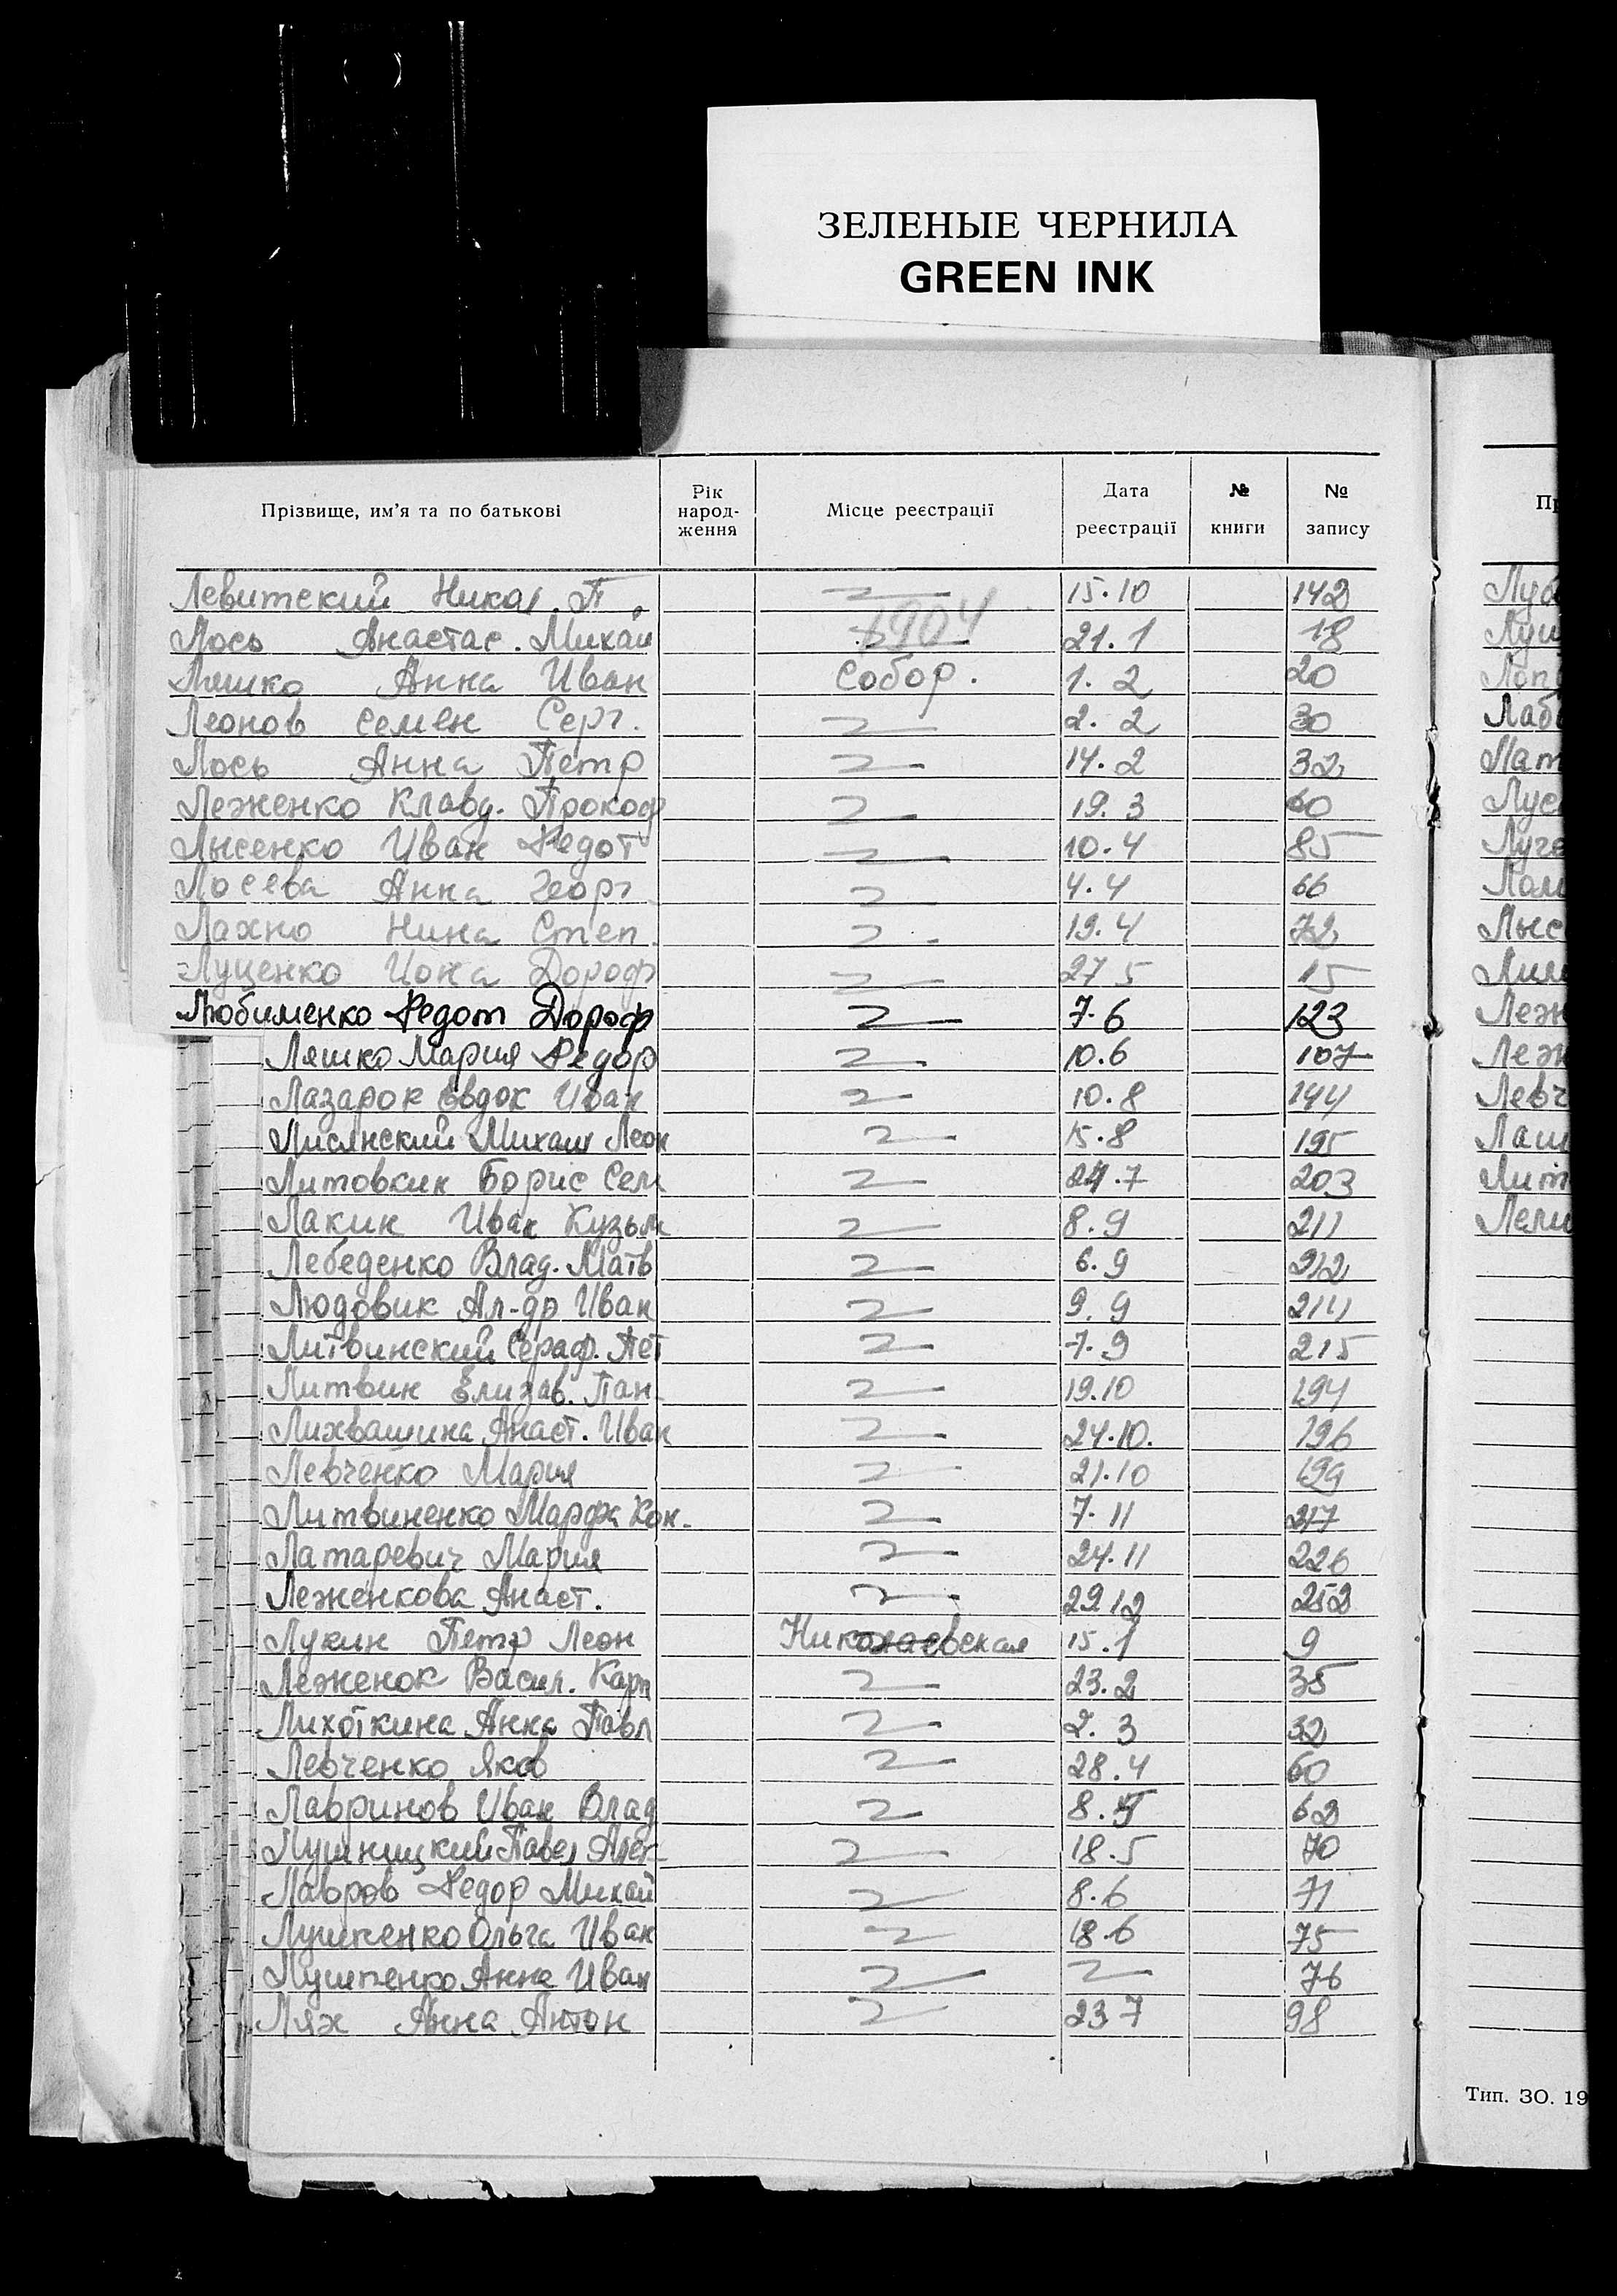 ЗЕЛЕНЫЕ ЧЕРНИЛА
GREEN INK
Прізвище, им'я та по батькові
Рік народ-ження
Місце реєстрації
Дата реєстрації
№ книги
№ запису
Левитский Никол. П. 15.10 142
Лось Анастас. Михай 1904 21.1 18
Ляшко Анна Иван собор. 1.2 20
Леонов Семен Серг. 2.2 30
Лось Анна Петр 14.2 32
Леженко Клавд. Прокоф 19.3 60
Лысенко Иван Федот 10.4 85
Лосева Анна Георг 4.4 66
Лахно Нина Степ. 19.4 72
Луценко Иона Дороф 27 5 15
Любименко Федот Дороф 7.6 123
Ляшко Мария Федор 10.6 107
Лазарок Евдок Иван 10.8 144
Лисянский Михаил Леон 15.8 195
Литовкин Борис Сем 24.7 203
Лакин Иван Кузьм 8.9 211
Лебеденко Влад. Матв 6.9 212
Людовик Ал-др Иван 9.9 214
Литвинский Сераф. Пет 7.9 215
Литвин Елизав. Пан. 19.10 194
Лихвашина Анаст. Иван 24.10. 196
Левченко Мария 21.10 199
Литвиненко Марфа Кон. 7.11 217
Латаревич Мария 24.11 226
Леженкова Анаст. 29 12 252
Лукин Петр Леон Николаевская 15.1 9
Леженок Васил. Карп 23.2 35
Лихоткина Анна Павл 2.3 32
Левченко Яков 28.4 60
Лавринов Иван Влад 8.5 62
Лушницкий Павел Алек 18.5 70
Лавров Федор Михай 8.6 71
Луштенко Ольга Иван 18.6 75
Луштенко Анна Иван 76
Лях Анна Антон 23 7 98
Тип. ЗО. 19